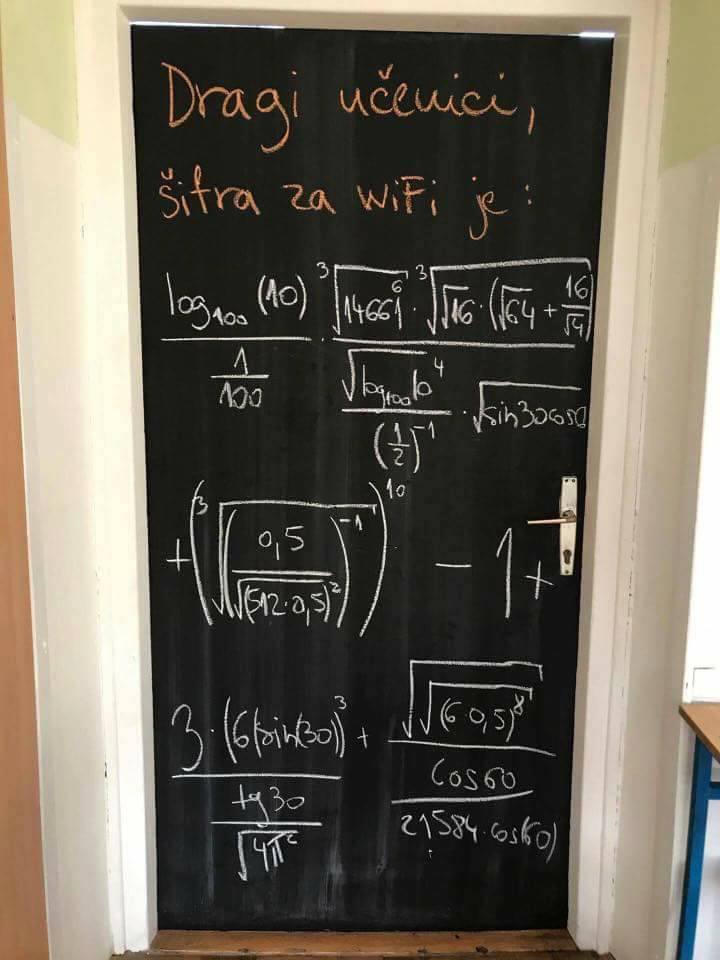 Dragi učenici,
šifra za WiFi je:
log₁₀₀(10) / (1/100) · ∛(14661⁶) · ∛(√16 · (√64 + 16/√4)) / (√(log₁₀₀10)⁴ / (1/2)⁻¹ · √(sin30cos60))
+ (∛((0,5 / √(512·0,5)²)⁻¹))¹⁰ - 1 +
3·(6(sin(30))³ / (tg30 / √(4π²)) + √(√((6·0,5)⁸)) / (cos60 / (21584·cos(60)))